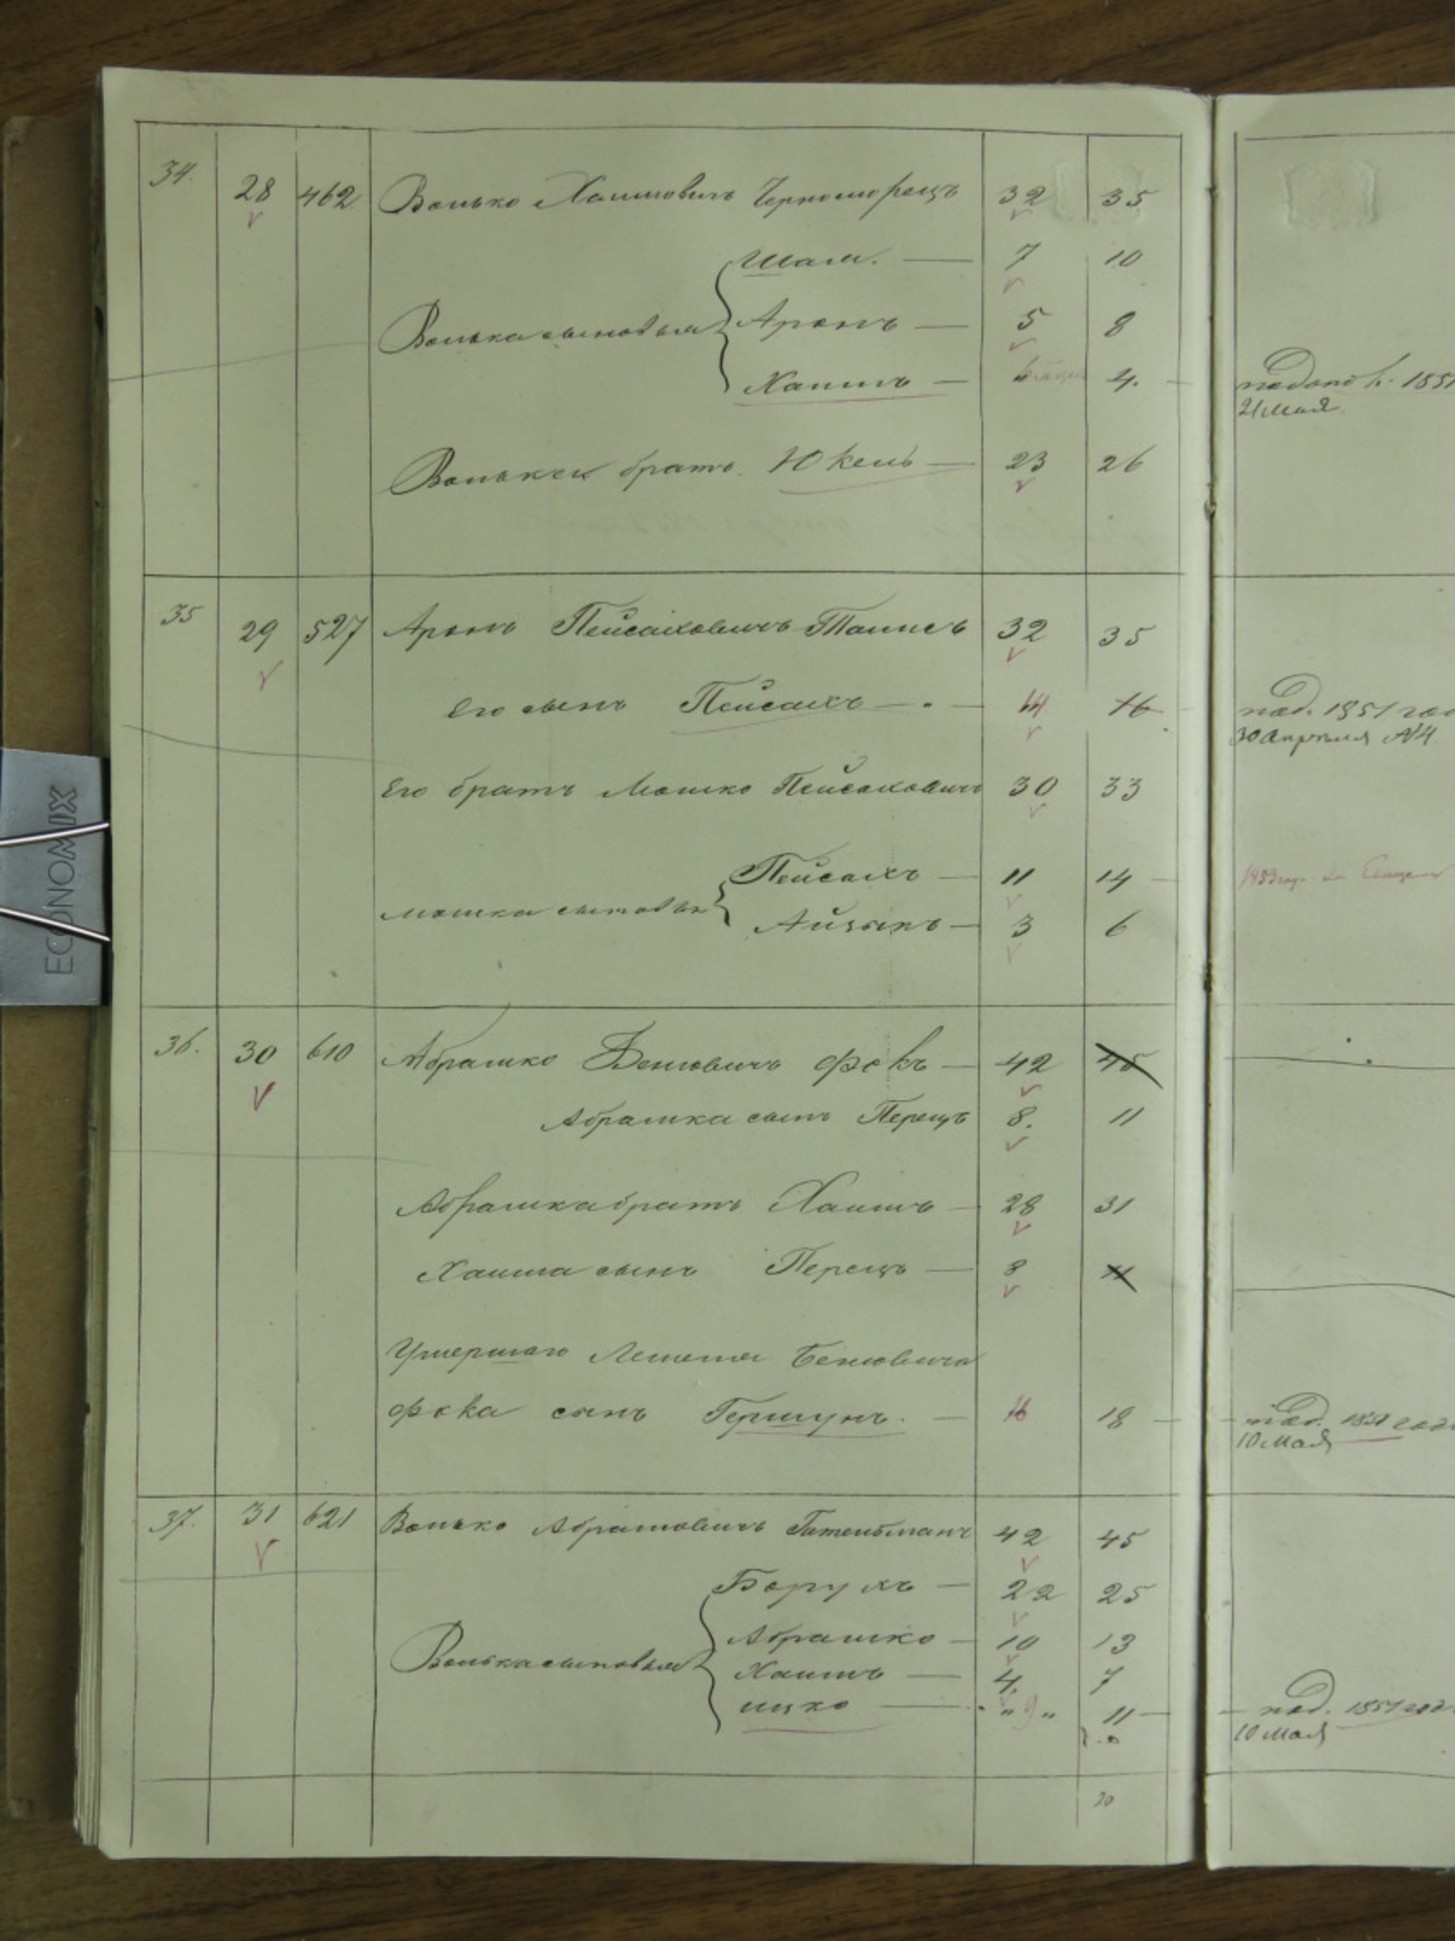 34. 28 462 Волько Хаимовичъ Черноморецъ 32 35
Шая. 7 10
Волька сыновья Аронъ 5 8
Хаимъ 4.
подано к. 1851
21 Мая
Волька братъ Юкель 23 26
35 29 527 Аронъ Пейсаховичъ 32 35
Его сынъ Пейсахъ 14 16
под. 1851 год
30 Апреля №4.
Его братъ Мошко Пейсаховичъ 30 33
Пейсахъ 11 14
1853 года
Мошка сыновья Айзыкъ 3 6
36. 30 610 Абрашко Бенювичъ Фокъ 42 45
Абрашка сынъ Перецъ 8. 11
Абрашка братъ Хаимъ 28 31
Хаима сынъ Перецъ 8 11
Умершаго Бенювича
Фока сынъ Гершунъ. 16 18
под. 1851 год
10 Мая
37. 31 621 Волько Абрамовичъ Гительманъ 42 45
Борухъ 22 25
Абрашко 10 13
Волька сыновья
Хаимъ 4 7
Ицко „9„ 11
под. 1851 год
10 Мая
20
ECONOMIX